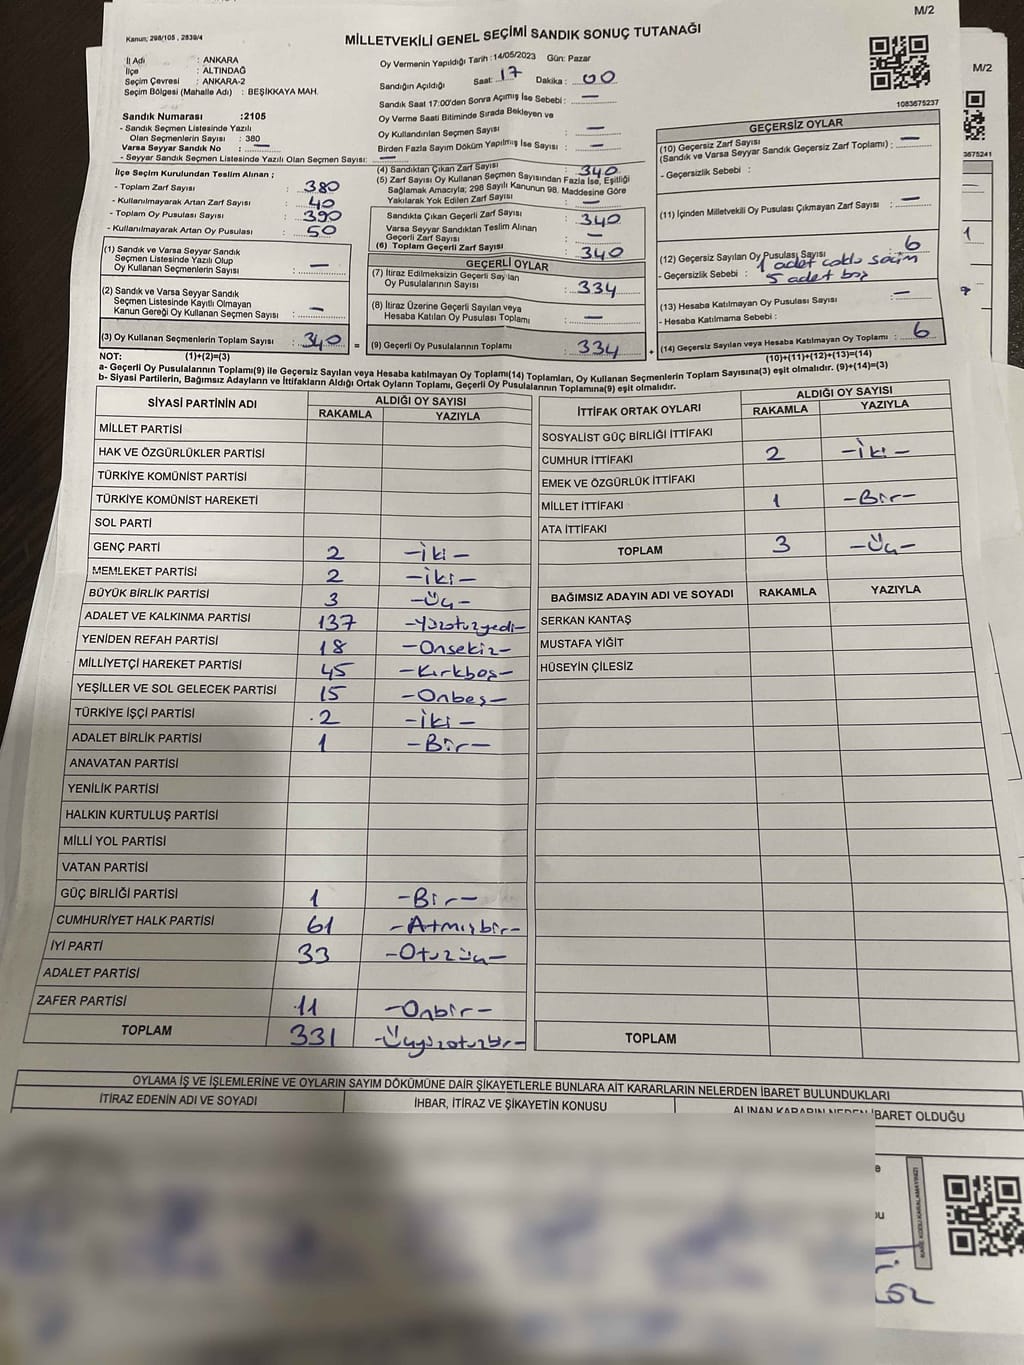 M/2
Kanun; 298/105 , 2839/4
MİLLETVEKİLİ GENEL SEÇİMİ SANDIK SONUÇ TUTANAĞI
İl Adı : ANKARA
İlçe : ALTINDAĞ
Seçim Çevresi : ANKARA-2
Seçim Bölgesi (Mahalle Adı) : BEŞİKKAYA MAH.
Sandık Numarası :2105
- Sandık Seçmen Listesinde Yazılı
Olan Seçmenlerin Sayısı : 380
Varsa Seyyar Sandık No : —
- Seyyar Sandık Seçmen Listesinde Yazılı Olan Seçmen Sayısı: —
İlçe Seçim Kurulundan Teslim Alınan ;
- Toplam Zarf Sayısı : 380
- Kullanılmayarak Artan Zarf Sayısı : 40
- Toplam Oy Pusulası Sayısı : 390
- Kullanılmayarak Artan Oy Pusulası : 50
(1) Sandık ve Varsa Seyyar Sandık
Seçmen Listesinde Yazılı Olup
Oy Kullanan Seçmenlerin Sayısı : —
(2) Sandık ve Varsa Seyyar Sandık
Seçmen Listesinde Kayıtlı Olmayan
Kanun Gereği Oy Kullanan Seçmen Sayısı : —
(3) Oy Kullanan Seçmenlerin Toplam Sayısı : 340 =
Oy Vermenin Yapıldığı Tarih :14/05/2023 Gün: Pazar
Sandığın Açıldığı Saat: 17 Dakika : 00
Sandık Saat 17:00'den Sonra Açımış İse Sebebi : —
Oy Verme Saati Bitiminde Sırada Bekleyen ve
Oy Kullandırılan Seçmen Sayısı : —
Birden Fazla Sayım Döküm Yapılmış İse Sayısı : —
(4) Sandıktan Çıkan Zarf Sayısı : 340
(5) Zarf Sayısı Oy Kullanan Seçmen Sayısından Fazla İse, Eşitliği
Sağlamak Amacıyla; 298 Sayılı Kanunun 98. Maddesine Göre
Yakılarak Yok Edilen Zarf Sayısı : —
Sandıkta Çıkan Geçerli Zarf Sayısı : 340
Varsa Seyyar Sandıktan Teslim Alınan
Geçerli Zarf Sayısı : —
(6) Toplam Geçerli Zarf Sayısı : 340
GEÇERLİ OYLAR
(7) İtiraz Edilmeksizin Geçerli Sayılan
Oy Pusulalarının Sayısı : 334
(8) İtiraz Üzerine Geçerli Sayılan veya
Hesaba Katılan Oy Pusulası Toplamı : —
(9) Geçerli Oy Pusulalarının Toplamı : 334 +
1083675237
GEÇERSİZ OYLAR
(10) Geçersiz Zarf Sayısı
(Sandık ve Varsa Seyyar Sandık Geçersiz Zarf Toplamı) : —
- Geçersizlik Sebebi :
(11) İçinden Milletvekili Oy Pusulası Çıkmayan Zarf Sayısı : —
(12) Geçersiz Sayılan Oy Pusulası Sayısı : 6
- Geçersizlik Sebebi : 1 adet çoklu seçim
5 adet boş
(13) Hesaba Katılmayan Oy Pusulası Sayısı : —
- Hesaba Katılmama Sebebi :
(14) Geçersiz Sayılan veya Hesaba Katılmayan Oy Toplamı : 6
NOT: (1)+(2)=(3) (10)+(11)+(12)+(13)=(14)
a- Geçerli Oy Pusulalarının Toplamı(9) ile Geçersiz Sayılan veya Hesaba katılmayan Oy Toplamı(14) Toplamları, Oy Kullanan Seçmenlerin Toplam Sayısına(3) eşit olmalıdır. (9)+(14)=(3)
b- Siyasi Partilerin, Bağımsız Adayların ve İttifakların Aldığı Ortak Oyların Toplamı, Geçerli Oy Pusulalarının Toplamına(9) eşit olmalıdır.
SİYASİ PARTİNİN ADI ALDIĞI OY SAYISI
RAKAMLA YAZIYLA
MİLLET PARTİSİ
HAK VE ÖZGÜRLÜKLER PARTİSİ
TÜRKİYE KOMÜNİST PARTİSİ
TÜRKİYE KOMÜNİST HAREKETİ
SOL PARTİ
GENÇ PARTİ 2 -İki-
MEMLEKET PARTİSİ 2 -İki-
BÜYÜK BİRLİK PARTİSİ 3 -Üç-
ADALET VE KALKINMA PARTİSİ 137 -Yüzotuzyedi-
YENİDEN REFAH PARTİSİ 18 -Onsekiz-
MİLLİYETÇİ HAREKET PARTİSİ 45 -Kırkbeş-
YEŞİLLER VE SOL GELECEK PARTİSİ 15 -Onbeş-
TÜRKİYE İŞÇİ PARTİSİ 2 -İki-
ADALET BİRLİK PARTİSİ 1 -Bir-
ANAVATAN PARTİSİ
YENİLİK PARTİSİ
HALKIN KURTULUŞ PARTİSİ
MİLLİ YOL PARTİSİ
VATAN PARTİSİ
GÜÇ BİRLİĞİ PARTİSİ 1 -Bir-
CUMHURİYET HALK PARTİSİ 61 -Atmışbir-
İYİ PARTİ 33 -Otuzüç-
ADALET PARTİSİ
ZAFER PARTİSİ 11 -Onbir-
TOPLAM 331 -Üçyüzotuzbir-
İTTİFAK ORTAK OYLARI ALDIĞI OY SAYISI
RAKAMLA YAZIYLA
SOSYALİST GÜÇ BİRLİĞİ İTTİFAKI
CUMHUR İTTİFAKI 2 -İki-
EMEK VE ÖZGÜRLÜK İTTİFAKI
MİLLET İTTİFAKI 1 -Bir-
ATA İTTİFAKI
TOPLAM 3 -Üç-
BAĞIMSIZ ADAYIN ADI VE SOYADI RAKAMLA YAZIYLA
SERKAN KANTAŞ
MUSTAFA YİĞİT
HÜSEYİN ÇİLESİZ
TOPLAM
OYLAMA İŞ VE İŞLEMLERİNE VE OYLARIN SAYIM DÖKÜMÜNE DAİR ŞİKAYETLERLE BUNLARA AİT KARARLARIN NELERDEN İBARET BULUNDUKLARI
İTİRAZ EDENİN ADI VE SOYADI İHBAR, İTİRAZ VE ŞİKAYETİN KONUSU ALINAN KARARIN NEDEN İBARET OLDUĞU
M/2
3675241